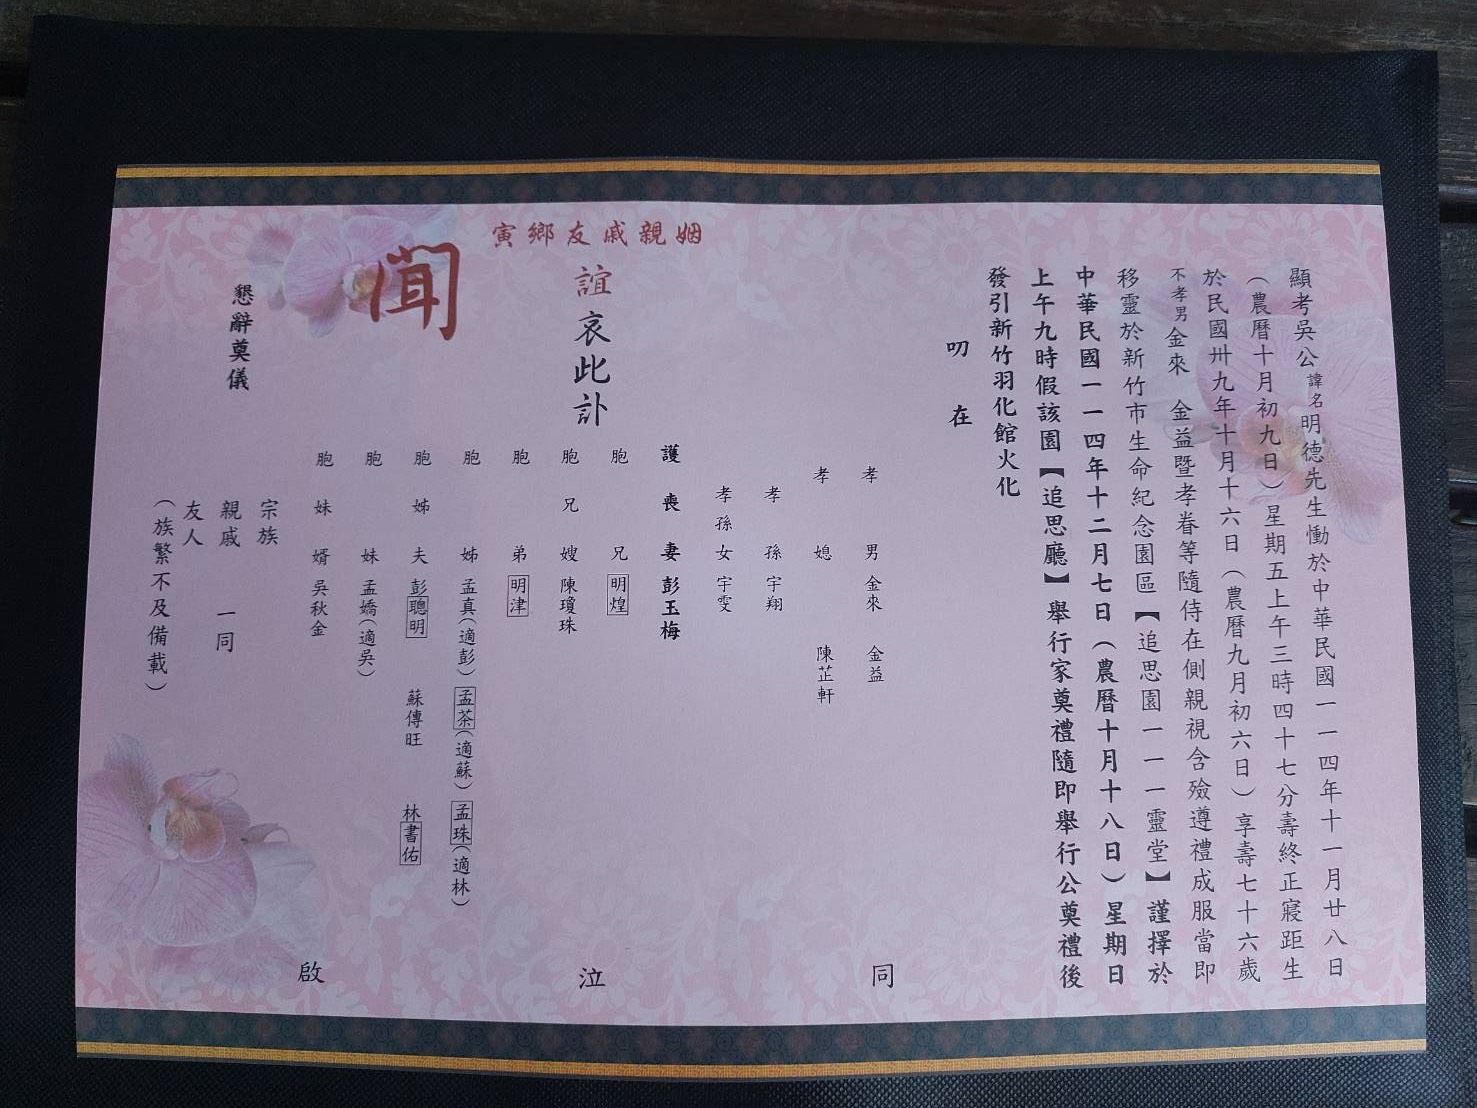 顯考吳公諱名明德先生慟於中華民國一一四年十一月廿八日
（農曆十月初九日）星期五上午三時四十七分壽終正寢距生
於民國卅九年十月十六日（農曆九月初六日）享壽七十六歲
不孝男金來　金益暨孝眷等隨侍在側親視含殮遵禮成服當即
移靈於新竹市生命紀念園區【追思園一一一靈堂】謹擇於
中華民國一一四年十二月七日（農曆十月十八日）星期日
上午九時假該園【追思廳】舉行家奠禮隨即舉行公奠禮後
發引新竹羽化館火化
叨在
姻親戚友鄉寅
誼哀此訃
聞
孝男 金來 金益
孝媳 陳芷軒
孝孫 宇翔
孝孫女 宇雯
護喪妻 彭玉梅
胞兄 明煌
胞兄嫂 陳瓊珠
胞弟 明津
胞姊 孟真（適彭） 孟茶（適蘇） 孟珠（適林）
胞姊夫 彭聰明 蘇傳旺 林書佑
胞妹 孟嬌（適吳）
胞妹婿 吳秋金
同泣啟
懇辭奠儀
宗族
親戚 一同
友人
（族繁不及備載）